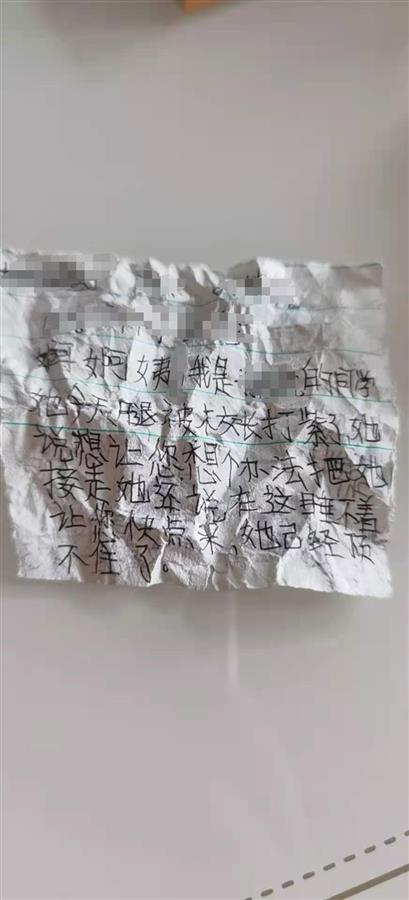 姨,我是 的同学
她今天腿被校长打紫了她
说想让您想个办法把她
接走她还说在这睡不着
让您快点来,她已经顶
不住了。